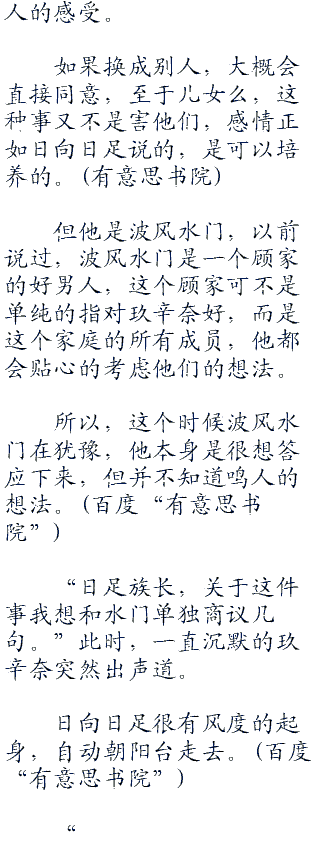 人的感受。
如果换成别人，大概会
直接同意，至于儿女么，这
种事又不是害他们，感情正
如日向日足说的，是可以培
养的。(有意思书院)
但他是波风水门，以前
说过，波风水门是一个顾家
的好男人，这个顾家可不是
单纯的指对玖辛奈好，而是
这个家庭的所有成员，他都
会贴心的考虑他们的想法。
所以，这个时候波风水
门在犹豫，他本身是很想答
应下来，但并不知道鸣人的
想法。(百度“有意思书
院”)
“日足族长，关于这件
事我想和水门单独商议几
句。”此时，一直沉默的玖
辛奈突然出声道。
日向日足很有风度的起
身，自动朝阳台走去。(百度
“有意思书院”)
“